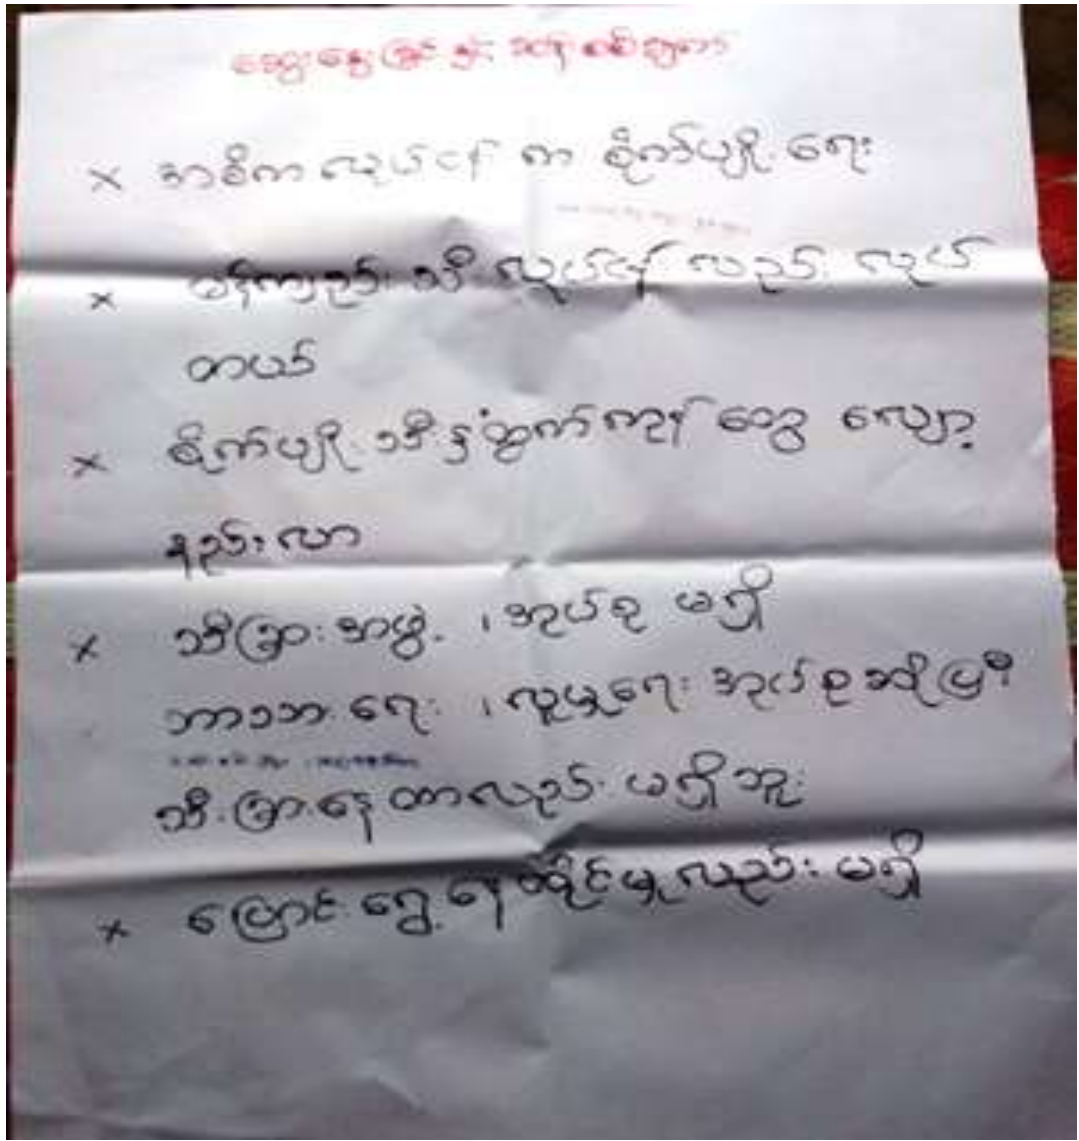 ဆွေးနွေးခြင်းနှင့် ဆန်းစစ်ချက်
× အဓိက လုပ်ငန်း က စိုက်ပျိုးရေး
× ပန်ကျည်း သီး လုပ်ငန်း လည်း လုပ်
တယ်
× စိုက်ပျိုး သီးနှံထွက်ကုန် တွေ လျော့
နည်းလာ
× သီးခြားအဖွဲ့ ၊ အုပ်စု မရှိ
ဘာသာရေး ၊ လူမှုရေး အုပ်စုဆိုပြီး
သီးခြားနေတာလည်း မရှိဘူး
× ပြောင်းရွှေ့နေထိုင်မှုလည်း မရှိ